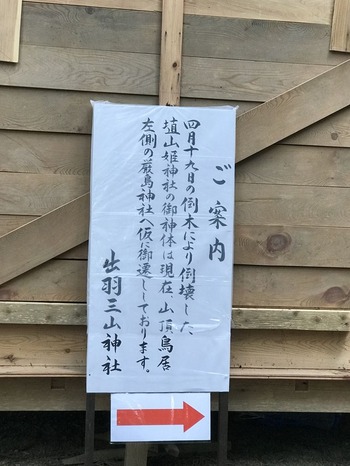 ご案内
四月十九日の倒木により倒壊した
埴山姫神社の御神体は現在、山頂鳥居
左側の厳島神社へ仮に御遷ししております。
出羽三山神社